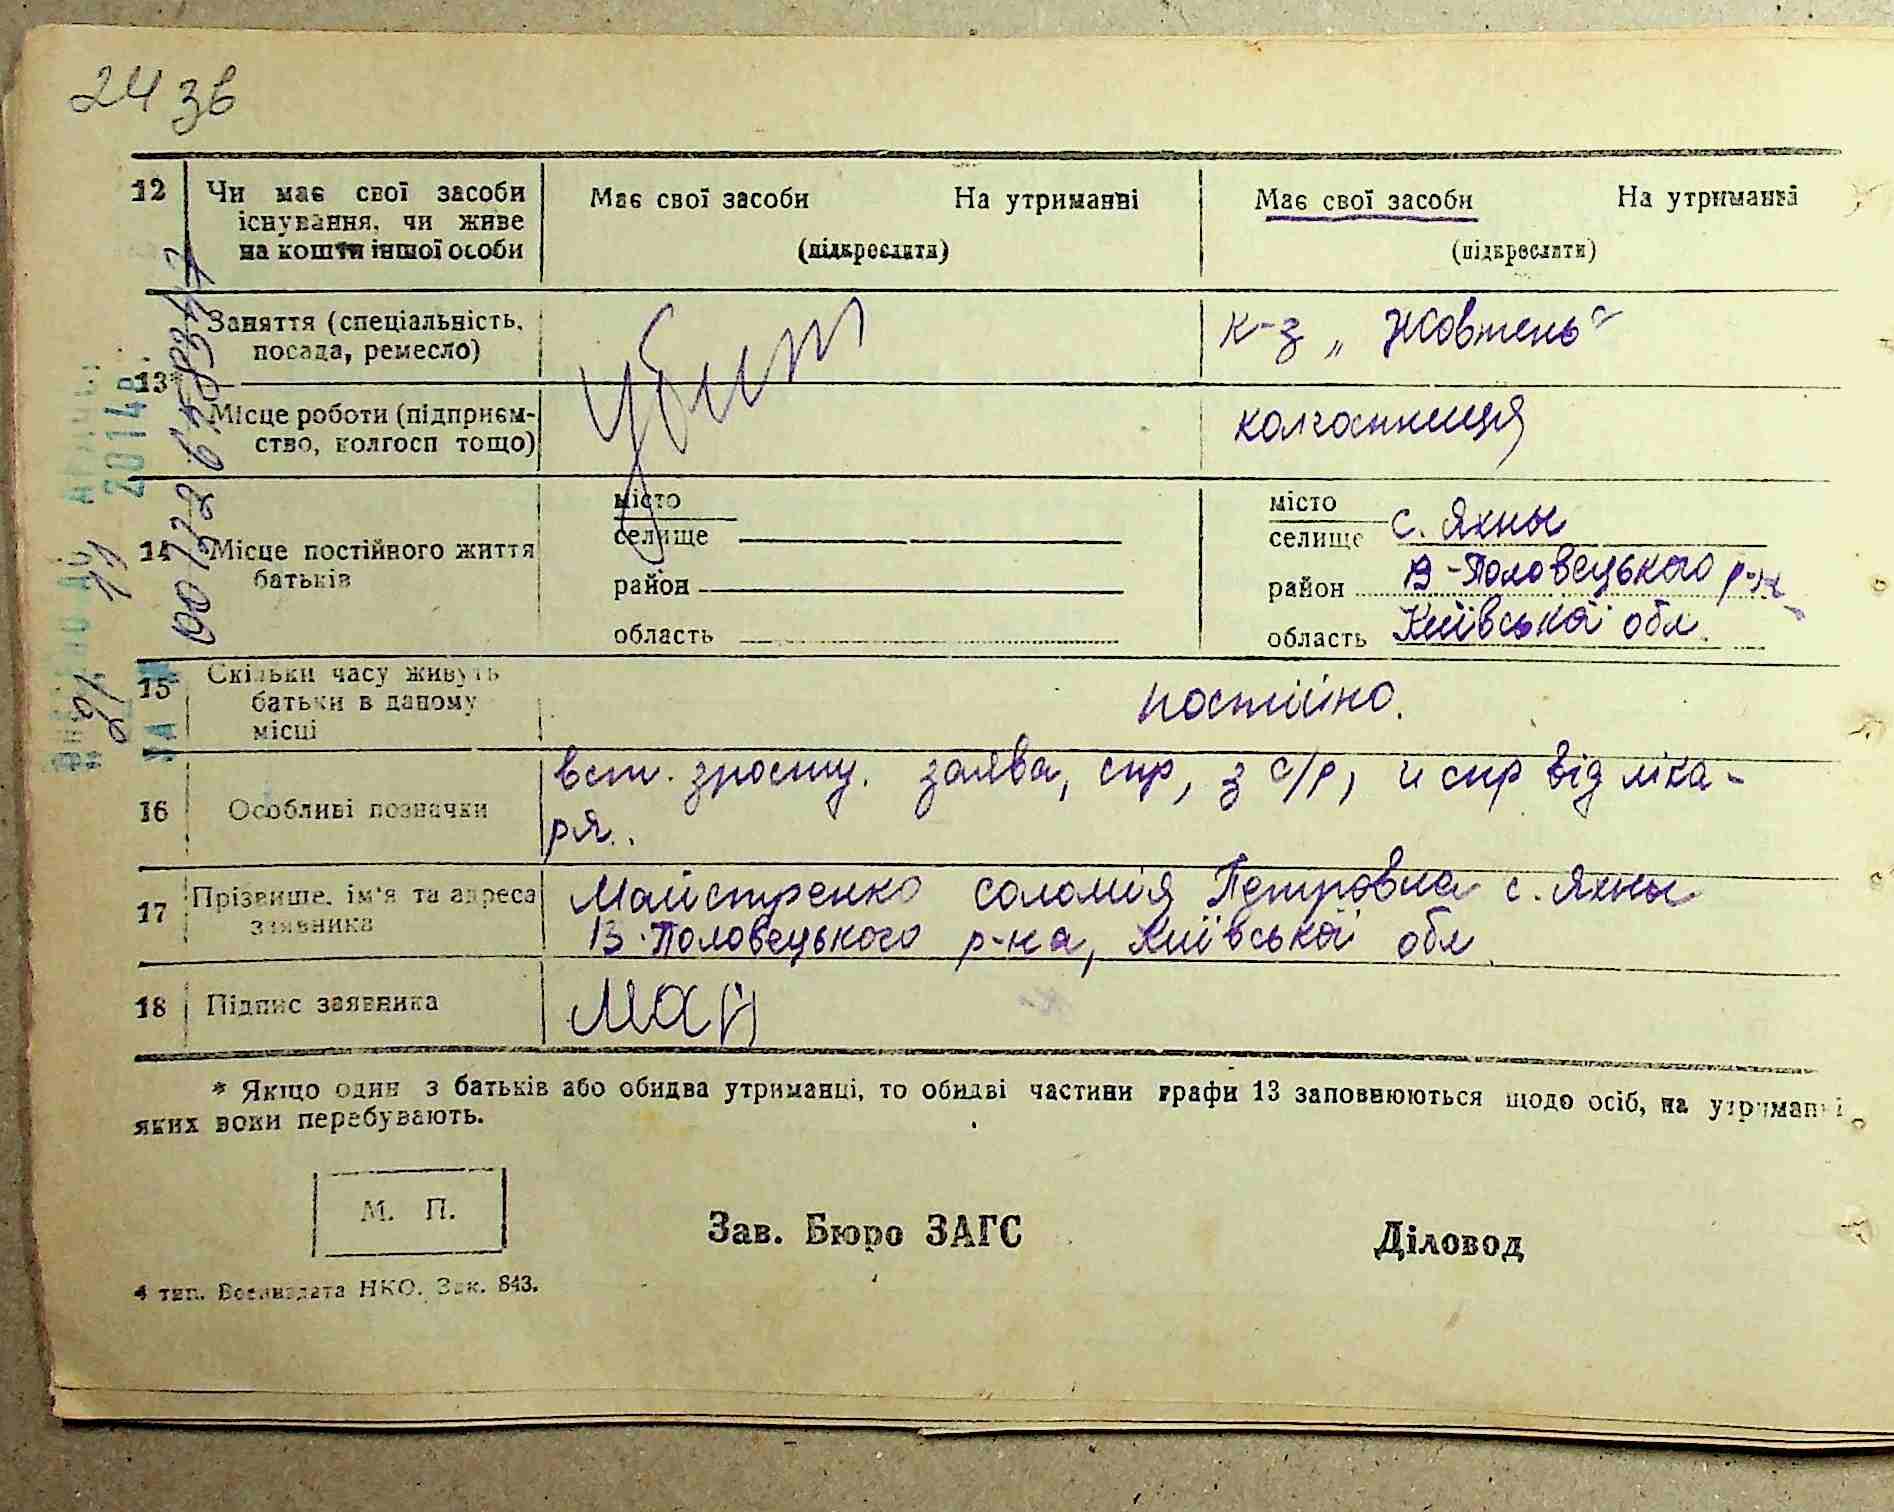 24 зв
12 Чи має свої засоби існування, чи живе на кошти іншої особи
Має свої засоби На утриманні
(підкреслити)
Має свої засоби На утриманні
(підкреслити)
13* Заняття (спеціальність, посада, ремесло)
убит
к-з „Жовтень“
Місце роботи (підприєм-
ство, колгосп тощо)
колгоспниця
14 Місце постійного життя батьків
місто
селище
район
область
місто
селище с. Яхны
район В-Половецького р-н
область Київської обл.
15 Скільки часу живуть батьки в даному місці
постійно.
16 Особливі позначки
вст. зросту. заява, спр, з с/р, и спр від ліка-
ря.
17 Прізвище, ім'я та адреса заявника
Майстренко Соломія Петровна с. Яхны
В-Половецького р-на, Київської обл
18 Підпис заявника
Май
* Якщо один з батьків або обидва утриманці, то обидві частини графи 13 заповнюються щодо осіб, на утриманні
яких вони перебувають.
М. П.
Зав. Бюро ЗАГС Діловод
4 тип. Воениздата НКО. Зак. 843.
2014